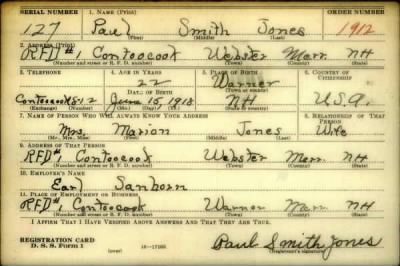 SERIAL NUMBER 1. NAME (Print) ORDER NUMBER
127 Paul Smith Jones 1912
(First) (Middle) (Last)
2. ADDRESS (Print)
RFD #1 Contoocook Webster Merr. NH
(Number and street or R. F. D. number) (Town) (County) (State)
3. TELEPHONE 4. AGE IN YEARS 5. PLACE OF BIRTH 6. COUNTRY OF CITIZENSHIP
22 Warner
DATE OF BIRTH (Town or county)
Contoocook 81-2 June 15, 1918 NH U.S.A.
(Exchange) (Number) (Mo.) (Day) (Yr.) (State or country)
7. NAME OF PERSON WHO WILL ALWAYS KNOW YOUR ADDRESS 8. RELATIONSHIP OF THAT PERSON
Mrs. Marion Jones Wife
(Mr., Mrs., Miss) (First) (Middle) (Last)
9. ADDRESS OF THAT PERSON
RFD #1 Contoocook Webster Merr. NH
(Number and street or R. F. D. number) (Town) (County) (State)
10. EMPLOYER'S NAME
Earl Sanborn
11. PLACE OF EMPLOYMENT OR BUSINESS
RFD #1 Contoocook Warner Merr. NH
(Number and street or R. F. D. number) (Town) (County) (State)
I AFFIRM THAT I HAVE VERIFIED ABOVE ANSWERS AND THAT THEY ARE TRUE.
REGISTRATION CARD
D. S. S. FORM 1 (over) 16-17105 Paul Smith Jones
(Registrant's signature)